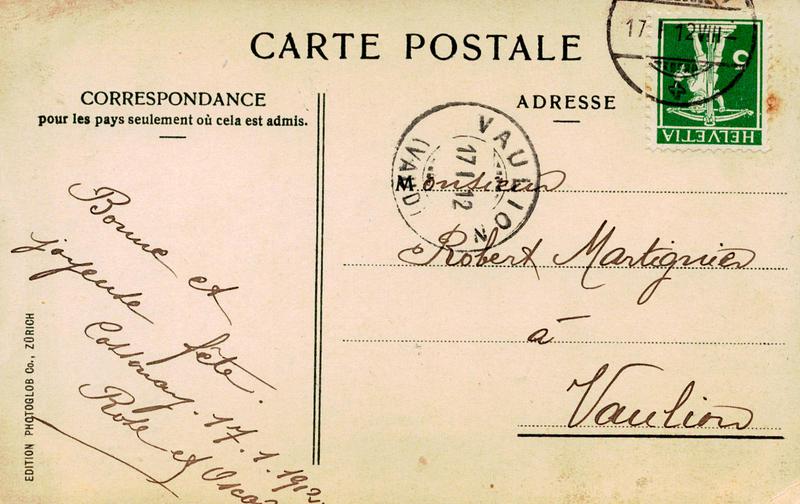 CARTE POSTALE
CORRESPONDANCE
pour les pays seulement où cela est admis.
ADRESSE
17 12 VII–
5
HELVETIA
VAULION
17 I 12
(VAUD)
Monsieur
Robert Martignier
à
Vaulion
Bonne et
joyeuse fête.
Cossonay. 17.1.1912.
Rose et Oscar
EDITION PHOTOGLOB Co., ZÜRICH